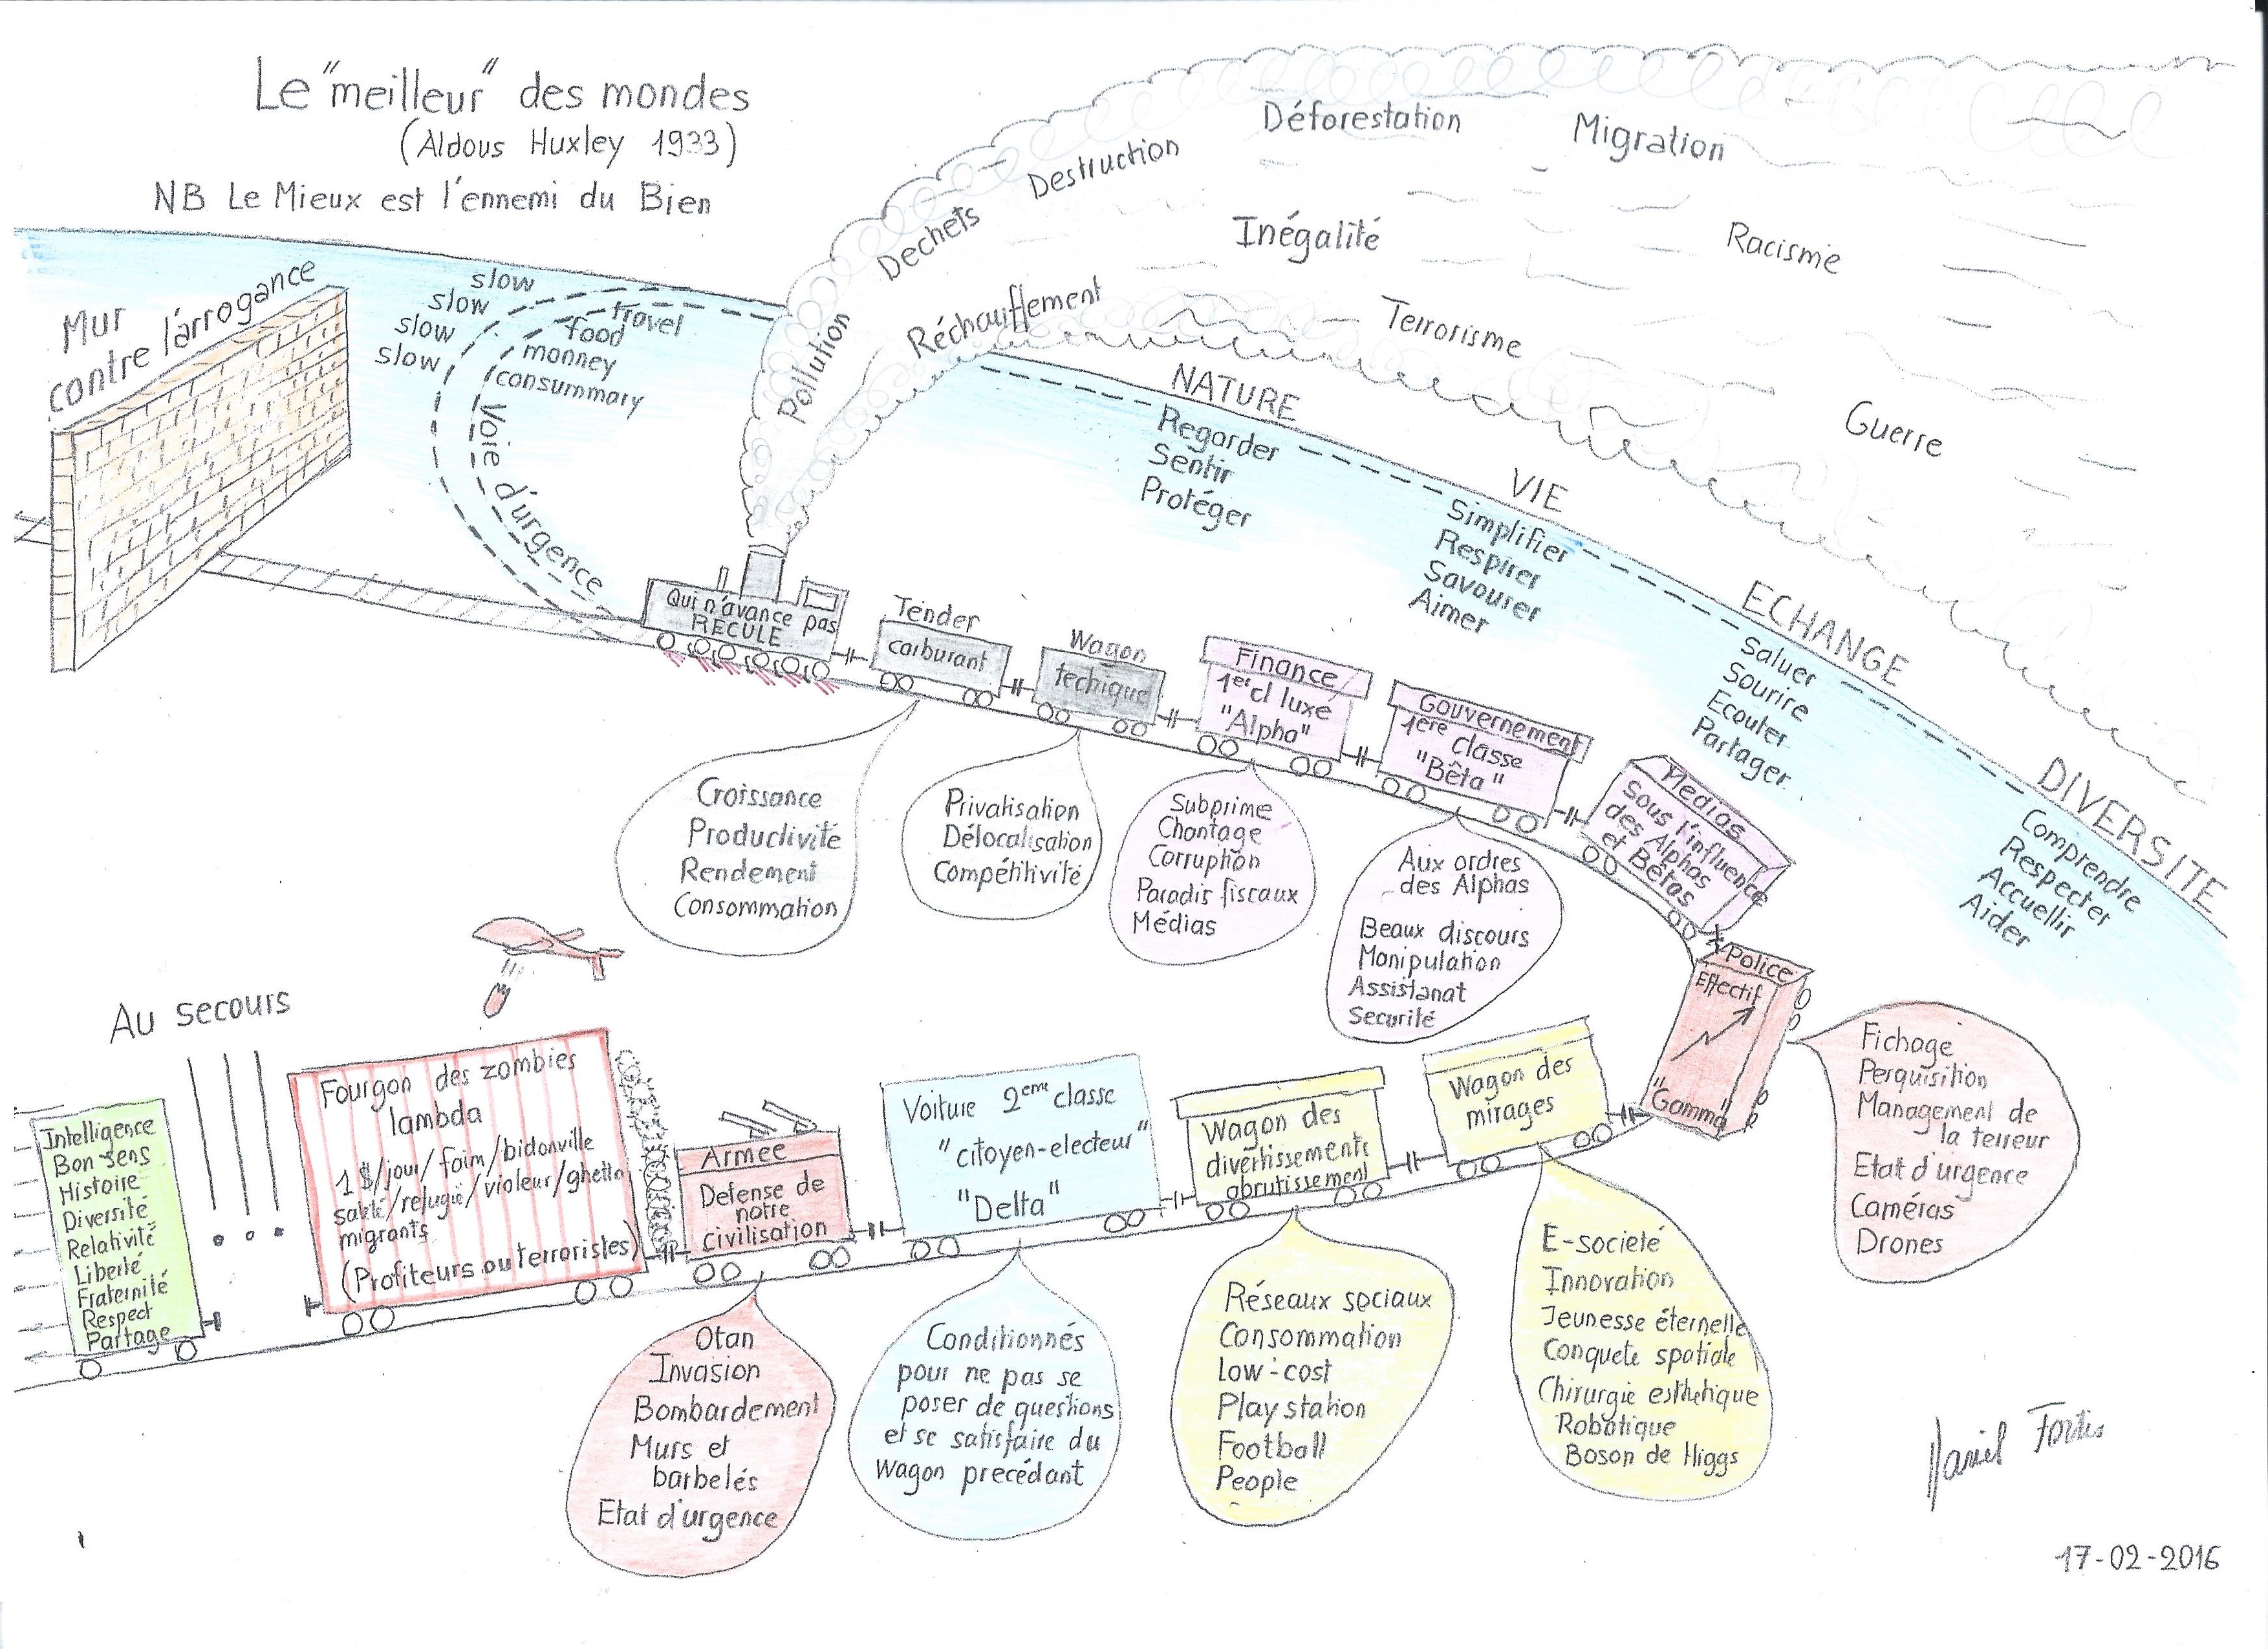 Le "meilleur" des mondes
(Aldous Huxley 1933)
NB Le Mieux est l'ennemi du Bien
Mur
contre l'arrogance
slow
slow
slow
slow
travel
food
monney
consummary
Voie d'urgence
Pollution
Dechets
Destruction
Déforestation
Migration
Réchauffement
Inégalité
Racisme
Terrorisme
Guerre
NATURE
Regarder
Sentir
Protéger
VIE
Simplifier
Respirer
Savourer
Aimer
ECHANGE
Saluer
Sourire
Ecouter
Partager
DIVERSITE
Comprendre
Respecter
Accuellir
Aider
Qui n'avance pas
RECULE
Tender
carburant
Wagon
techique
Finance
1er cl luxe
"Alpha"
Gouvernement
1ère classe
"Bêta"
Medias
sous l'influence
des Alphas
et Bêtas
Police
Effectif
"Gamma"
Croissance
Productivité
Rendement
Consommation
Privatisation
Délocalisation
Compétitivité
Subprime
Chantage
Corruption
Paradis fiscaux
Médias
Aux ordres
des Alphas
Beaux discours
Manipulation
Assistanat
Securité
Fichage
Perquisition
Management de
la terreur
Etat d'urgence
Caméras
Drones
Au secours
Intelligence
Bon sens
Histoire
Diversité
Relativité
Liberté
Fraternité
Respect
Partage
Fourgon des zombies
lambda
1$/jour/faim/bidonville
saleté/refugié/violeur/ghetto
migrants
(Profiteurs ou terroristes)
Armée
Defense de
notre
civilisation
Voiture 2eme classe
"citoyen-electeur"
"Delta"
Wagon des
divertissements
abrutissement
Wagon des
mirages
Otan
Invasion
Bombardement
Murs et
barbelés
Etat d'urgence
Conditionnés
pour ne pas se
poser de questions
et se satisfaire du
Wagon precédant
Réseaux sociaux
Consommation
Low-cost
Play station
Football
People
E-societé
Innovation
Jeunesse éternelle
Conquete spatiale
Chirurgie esthetique
Robotique
Boson de Higgs
Daniel Fortis
17-02-2016